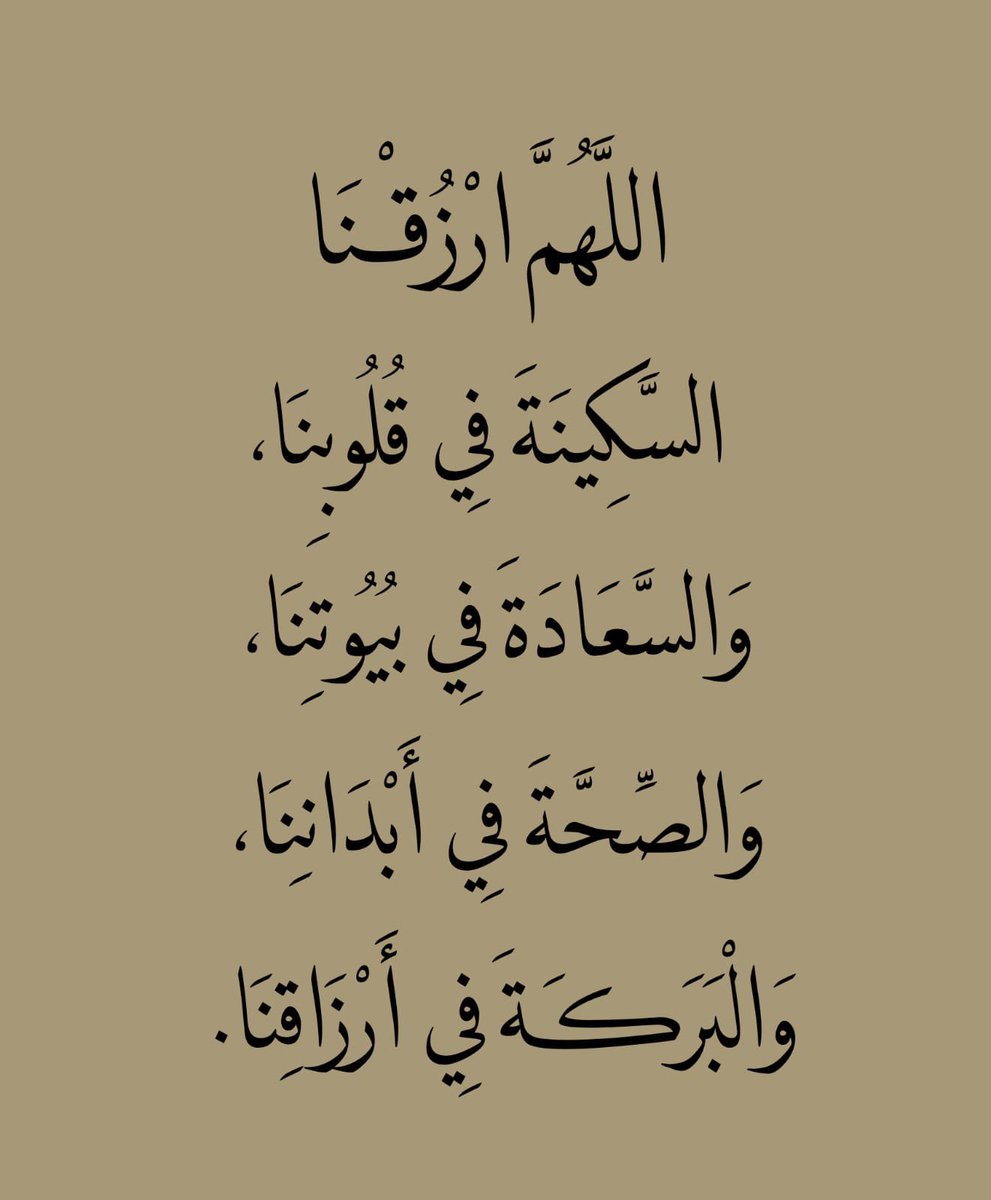 اللَّهُمَّ ارْزُقْـنَا
السَّكِينَةَ فِي قُلُوبِنَا،
وَالسَّعَادَةَ فِي بُيُوتِنَا،
وَالصِّحَّةَ فِي أَبْدَانِنَا،
وَالْبَرَكَةَ فِي أَرْزَاقِنَا.